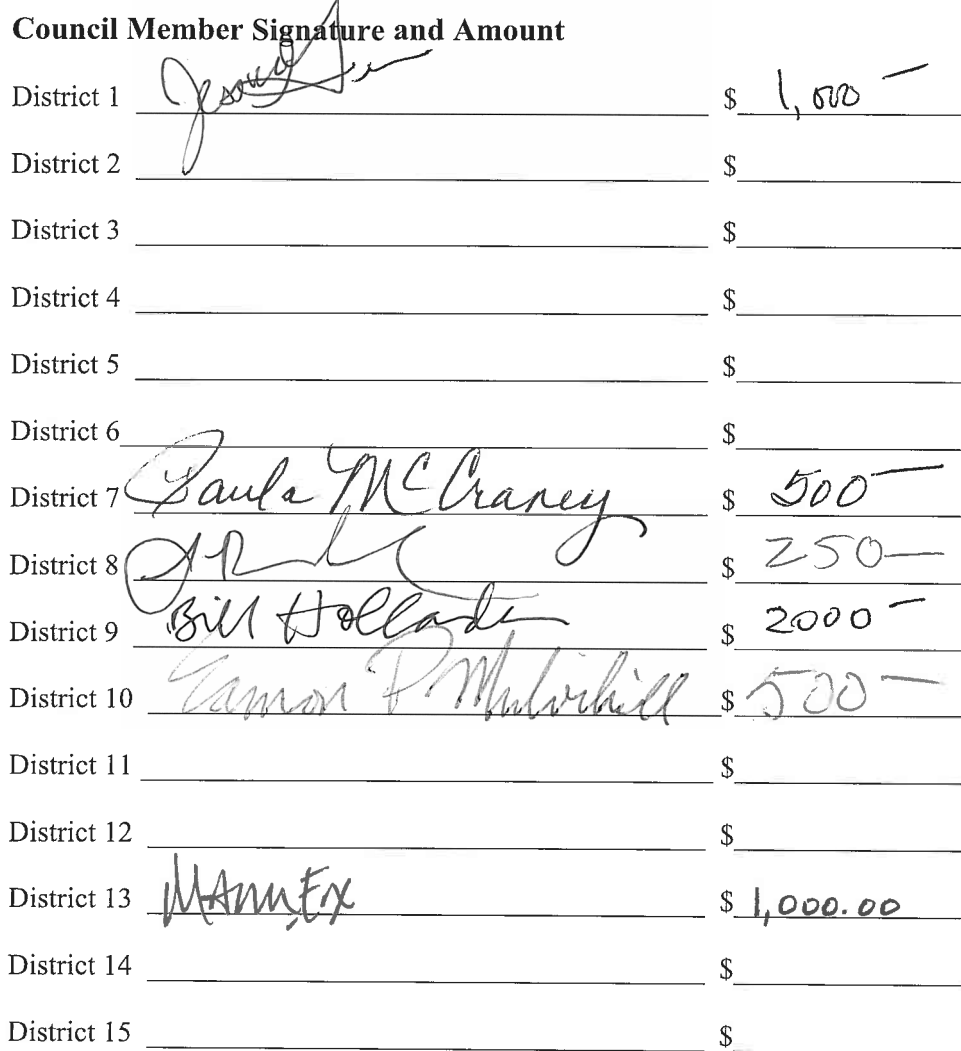 Council Member Signature and Amount
District 1 $ 1,000-
District 2 $
District 3 $
District 4 $
District 5 $
District 6 $
District 7 Paula McCraney $ 500-
District 8 $ 250-
District 9 Bill Hollander $ 2000-
District 10 Eamon P Mulvihill $ 500-
District 11 $
District 12 $
District 13 $ 1,000.00
District 14 $
District 15 $